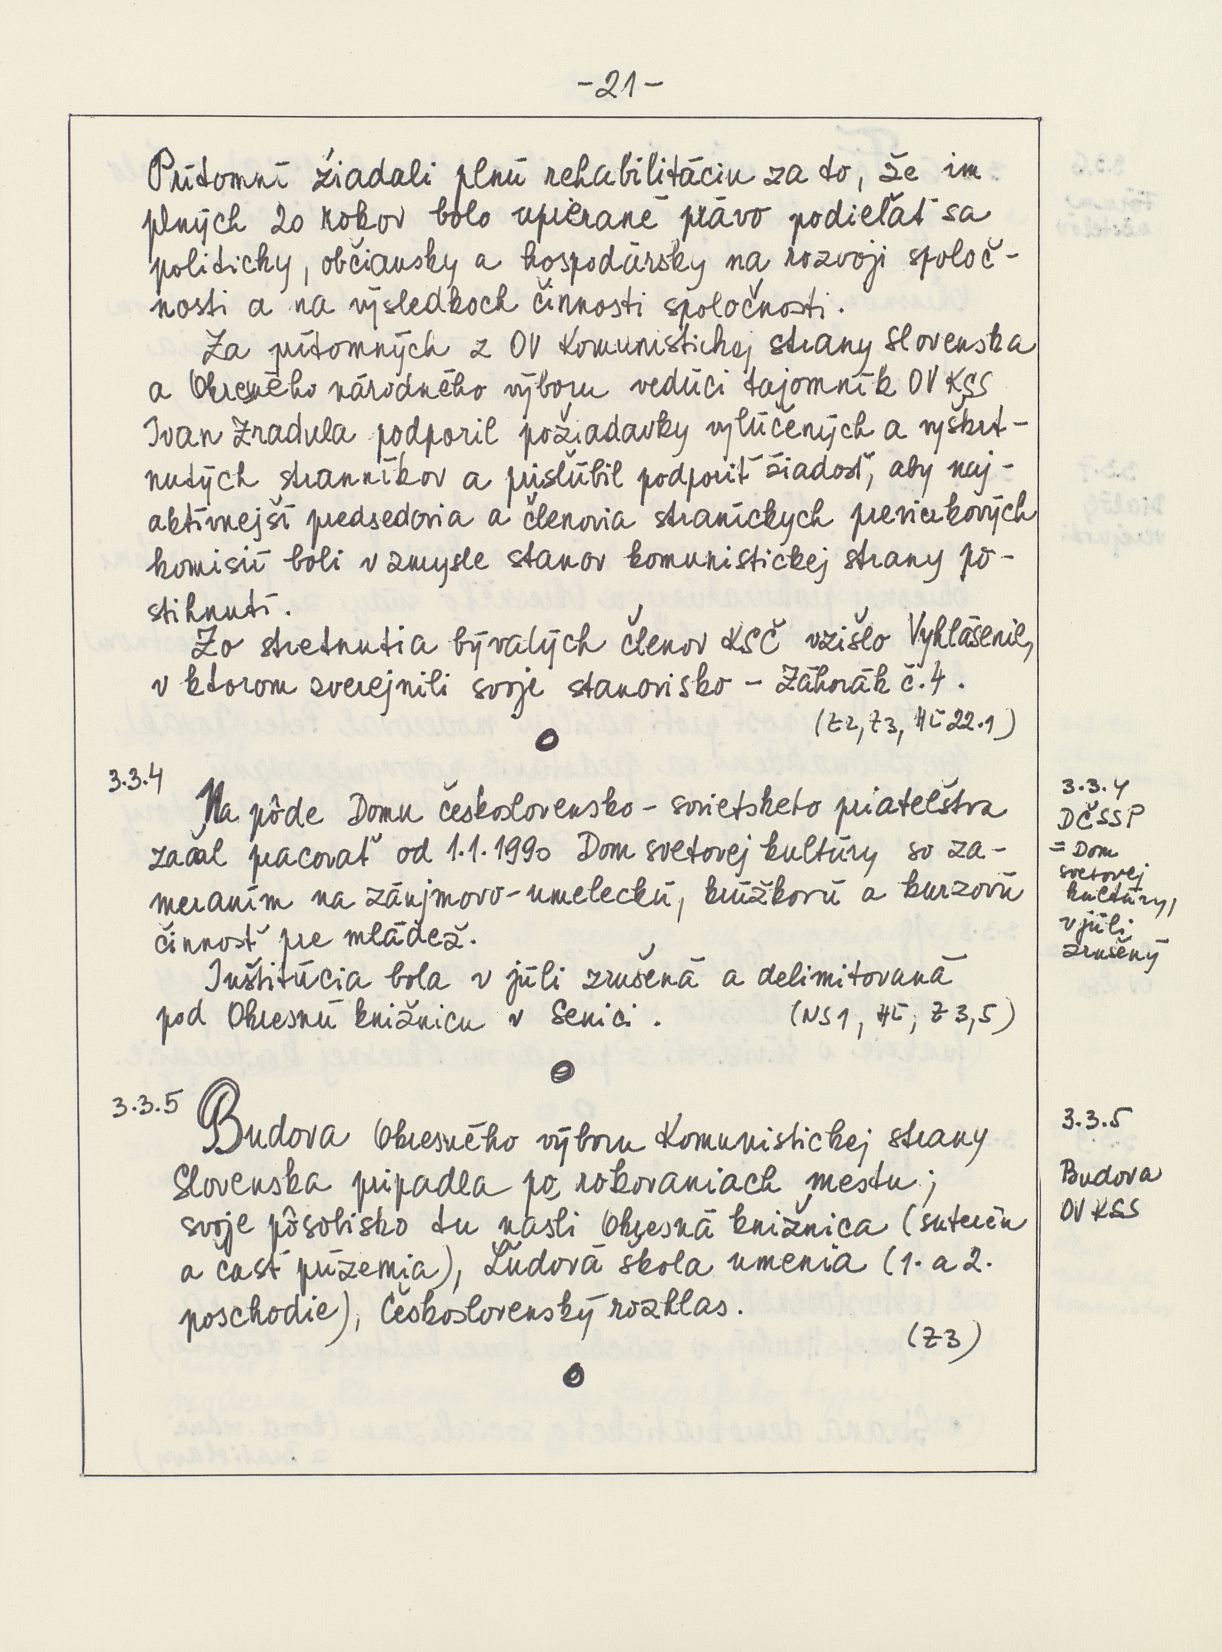 -21-
Prítomní žiadali plnú rehabilitáciu za to, že im
plných 20 rokov bolo upierané právo podieľať sa
politicky, občiansky a hospodársky na rozvoji spoloč-
nosti a na výsledkoch činnosti spoločnosti.
Za prítomných z OV Komunistickej strany Slovenska
a Okresného národného výboru vedúci tajomník OV KSS
Ivan Zradula podporil požiadavky vylúčených a vyškrt-
nutých straníkov a prisľúbil podporiť žiadosť, aby naj-
aktívnejší predsedovia a členovia straníckych previerkových
komisií boli v zmysle stanov komunistickej strany po-
stihnutí.
Zo stretnutia bývalých členov KSČ vzišlo Vyhlásenie,
v ktorom zverejnili svoje stanovisko - Záhorák č.4.
(Z2, Z3, HĽ 22.1)
3.3.4
Na pôde Domu československo-sovietskeho priateľstva
začal pracovať od 1.1.1990 Dom svetovej kultúry so za-
meraním na záujmovo-umeleckú, krúžkovú a kurzovú
činnosť pre mládež.
Inštitúcia bola v júli zrušená a delimitovaná
pod Okresnú knižnicu v Senici. (NS1, HĽ, Z3,5)
3.3.4
DČSSP
= Dom
svetovej
kultúry,
v júli
zrušený
3.3.5
Budova Okresného výboru Komunistickej strany
Slovenska pripadla po rokovaniach mestu;
svoje pôsobisko tu našli Okresná knižnica (suterén
a časť prízemia), Ľudová škola umenia (1. a 2.
poschodie), Československý rozhlas.
(Z3)
3.3.5
Budova
OV KSS